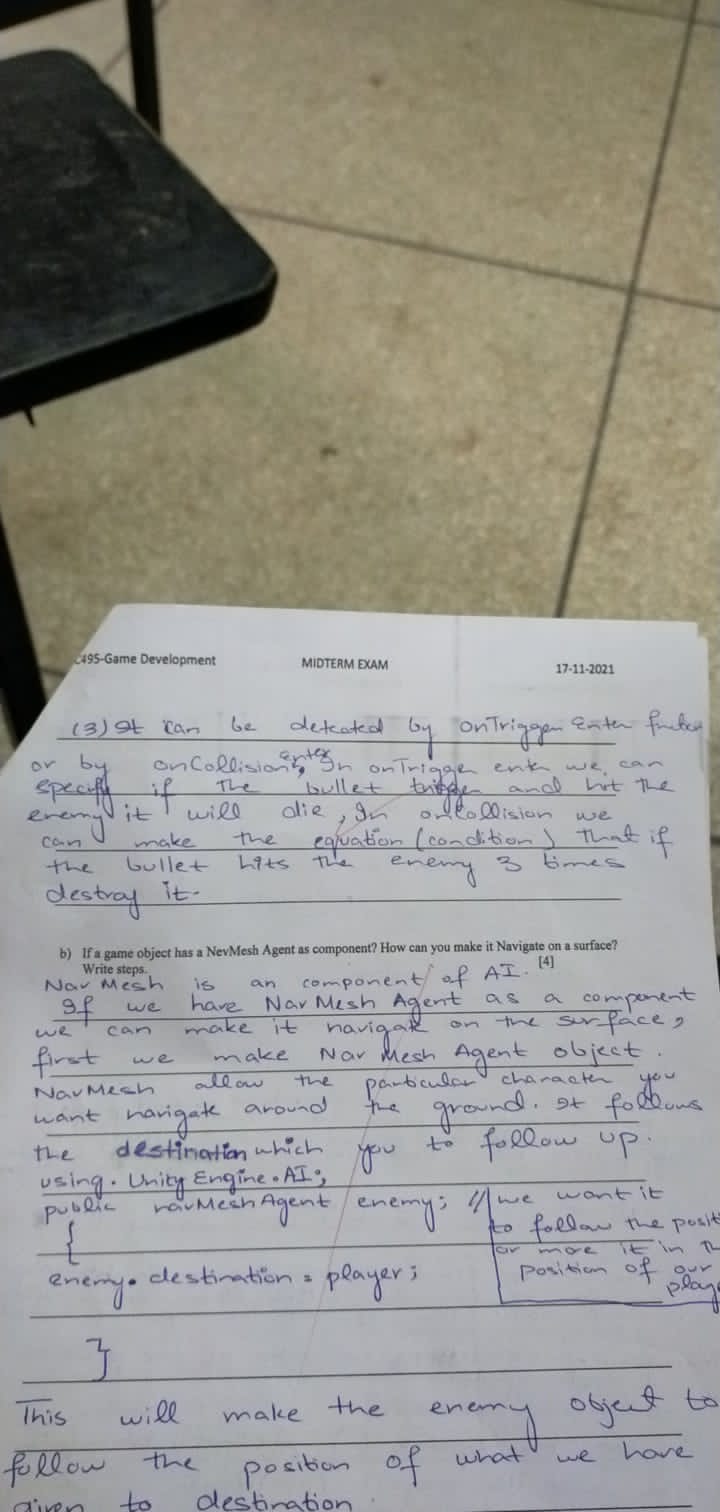 C495-Game Development MIDTERM EXAM 17-11-2021
(3) It can be detcated by onTrigger Enter
or by onCollision Enter, In onTrigger enter we can
specify if The bullet trigger and hit the
enemy it will die, In onCollision we
can make the equation (condition) that if
the bullet hits the enemy 3 times
destray it.
b) If a game object has a NevMesh Agent as component? How can you make it Navigate on a surface?
Write steps. [4]
Nav Mesh is an component of AI.
If we have Nav Mesh Agent as a component
we can make it navigate on the surface,
first we make Nav Mesh Agent object.
NavMesh allow the particular character you
want navigate around the ground. It follows
the destination which you to follow up.
using. Unity Engine.AI;
public navMeshAgent enemy; // we want it
{ to follow the posit
or move it in Th
enemy. destination = player; position of our
play
}
This will make the enemy object to
follow the position of what we have
given to destination